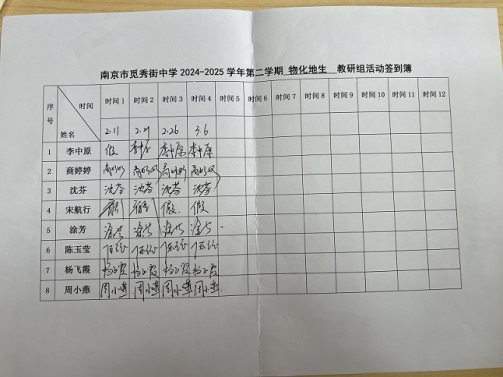 南京市觅秀街中学 2024-2025 学年第二学期 物化地生 教研组活动签到簿
序号 时间 姓名 时间 1 时间 2 时间 3 时间 4 时间 5 时间 6 时间 7 时间 8 时间 9 时间 10 时间 11 时间 12
2.11 2.26 3.6
1 李中原 假 李中原 李中原
2 商婷婷
3 沈芬 沈芬 沈芬 沈芬 沈芬
4 宋航行 假 假
5 涂芳 涂芳 涂芳 涂芳 涂芳
6 陈玉莹
7 杨飞霞 杨飞霞 杨飞霞 杨飞霞 杨飞霞
8 周小燕 周小燕 周小燕 周小燕 周小燕